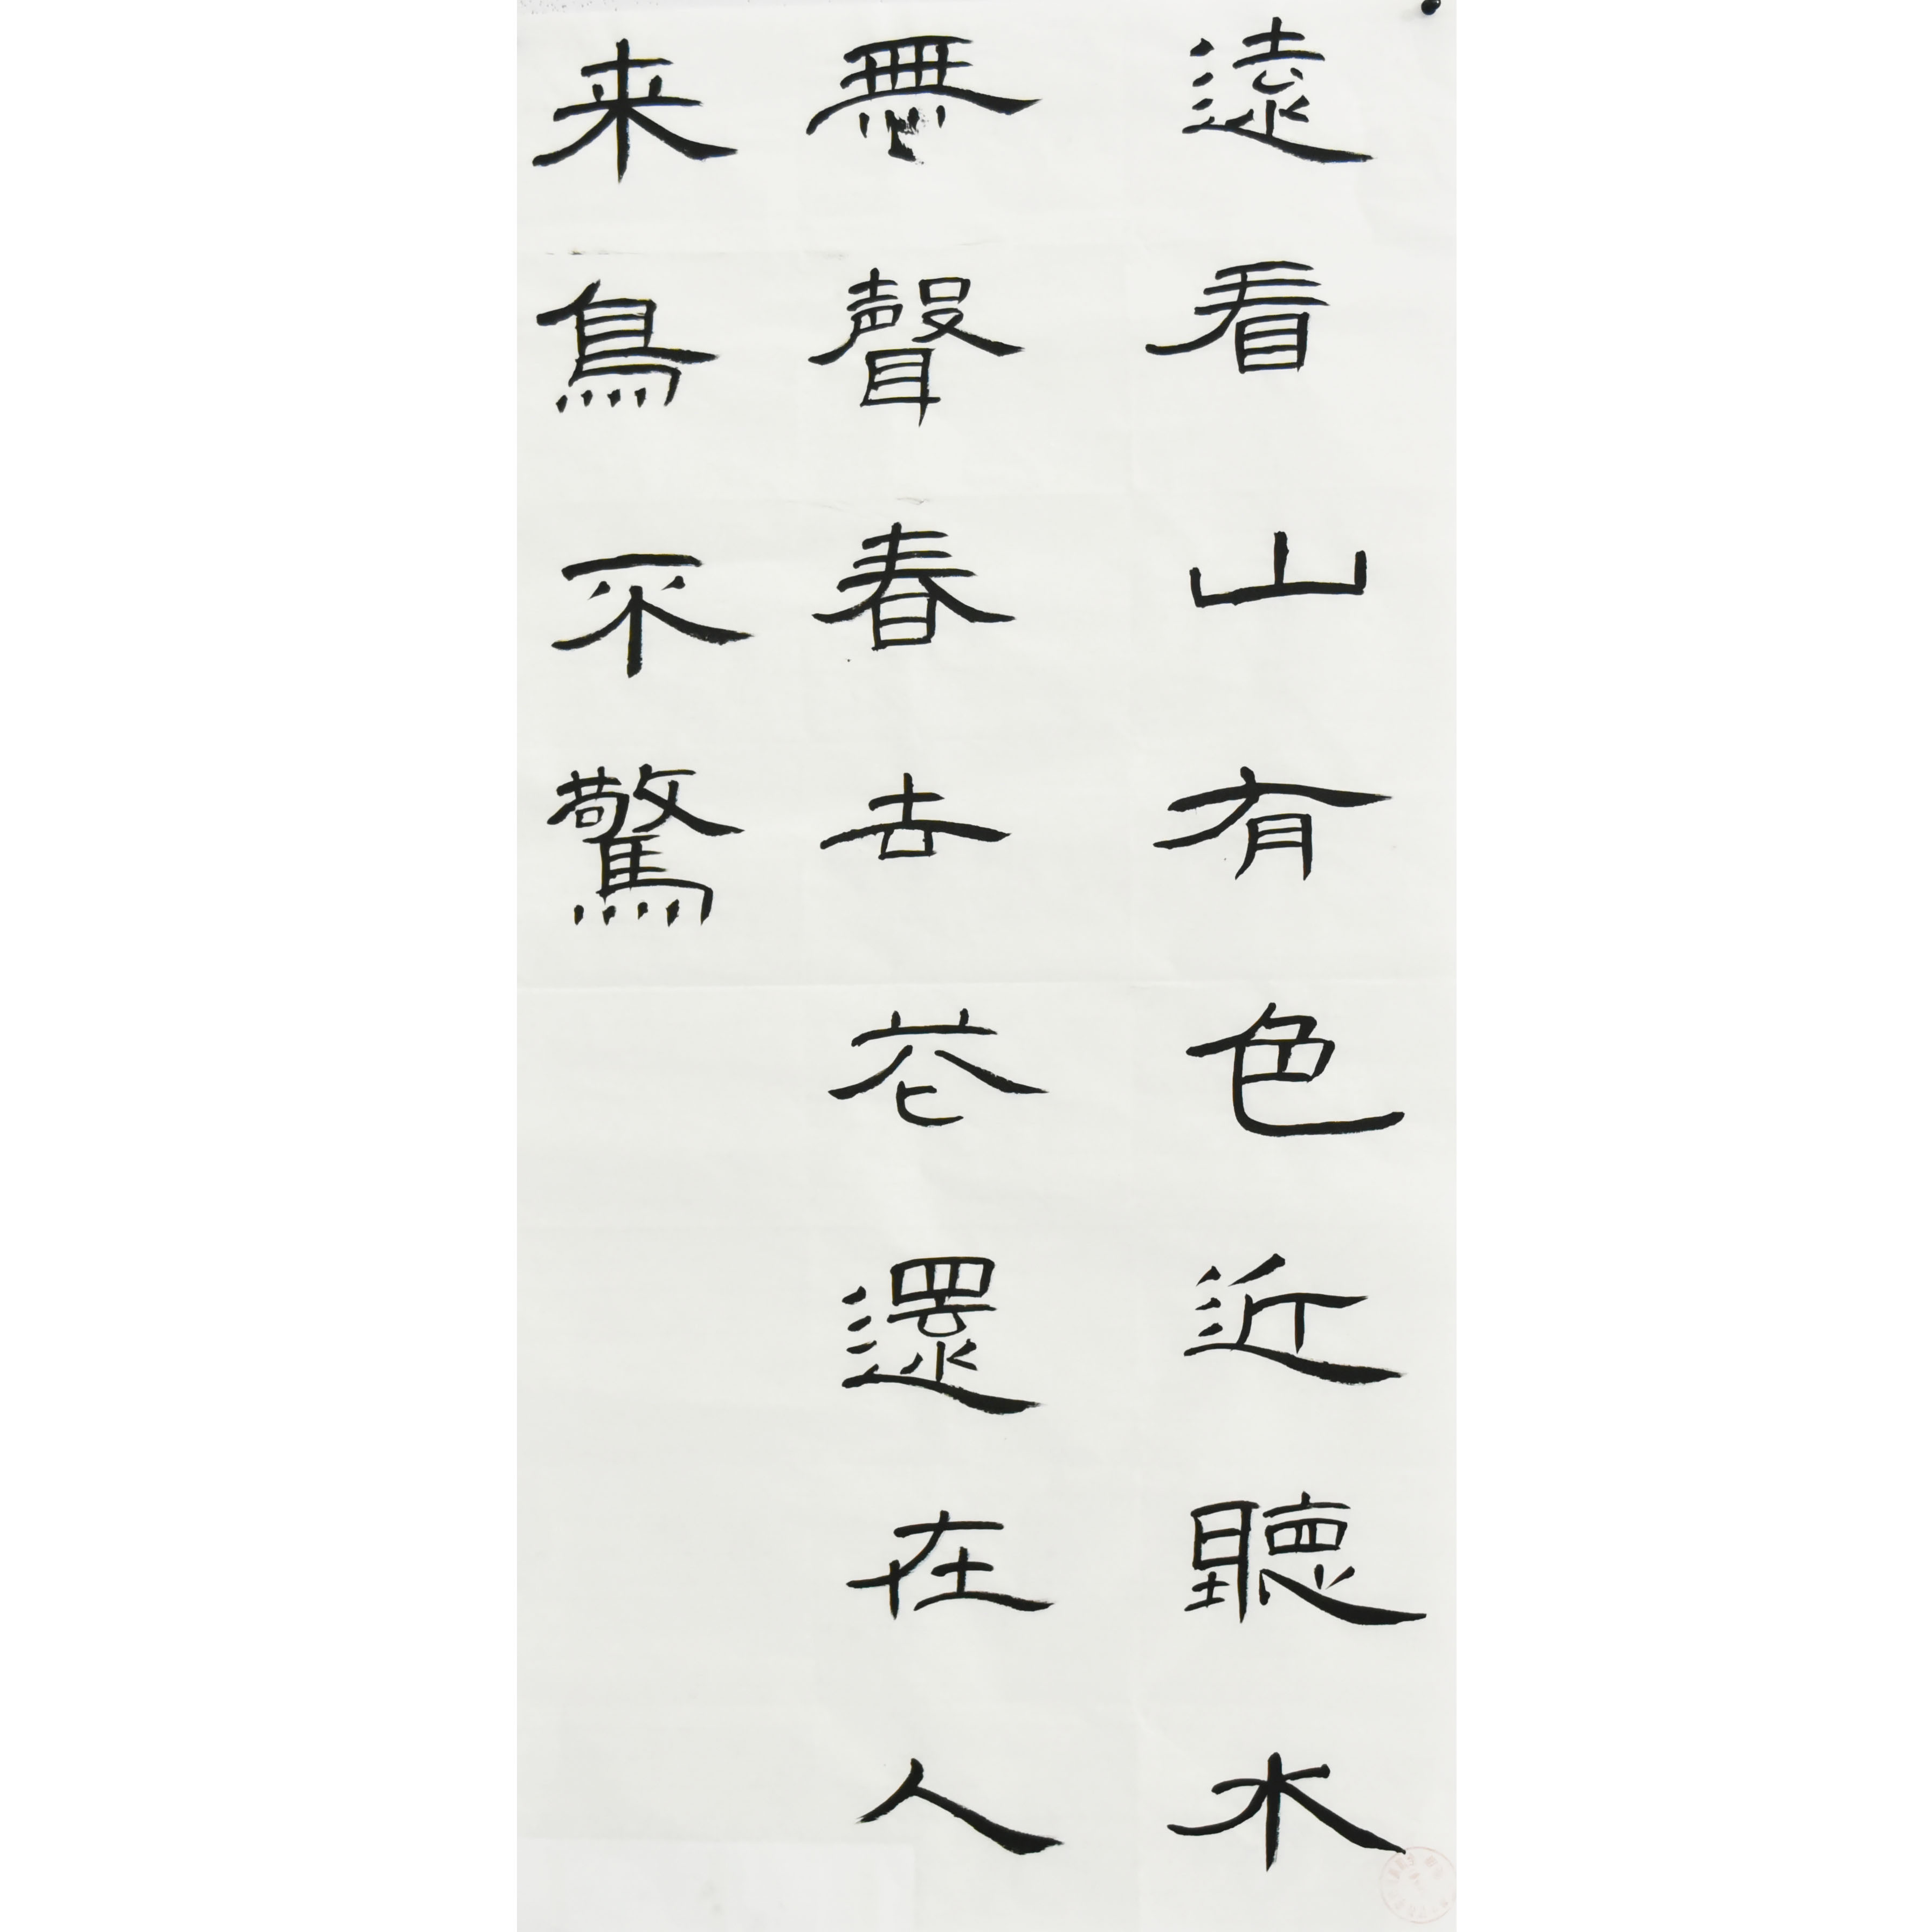 遠看山有色近聽水
無聲春去花還在人
来鳥不驚